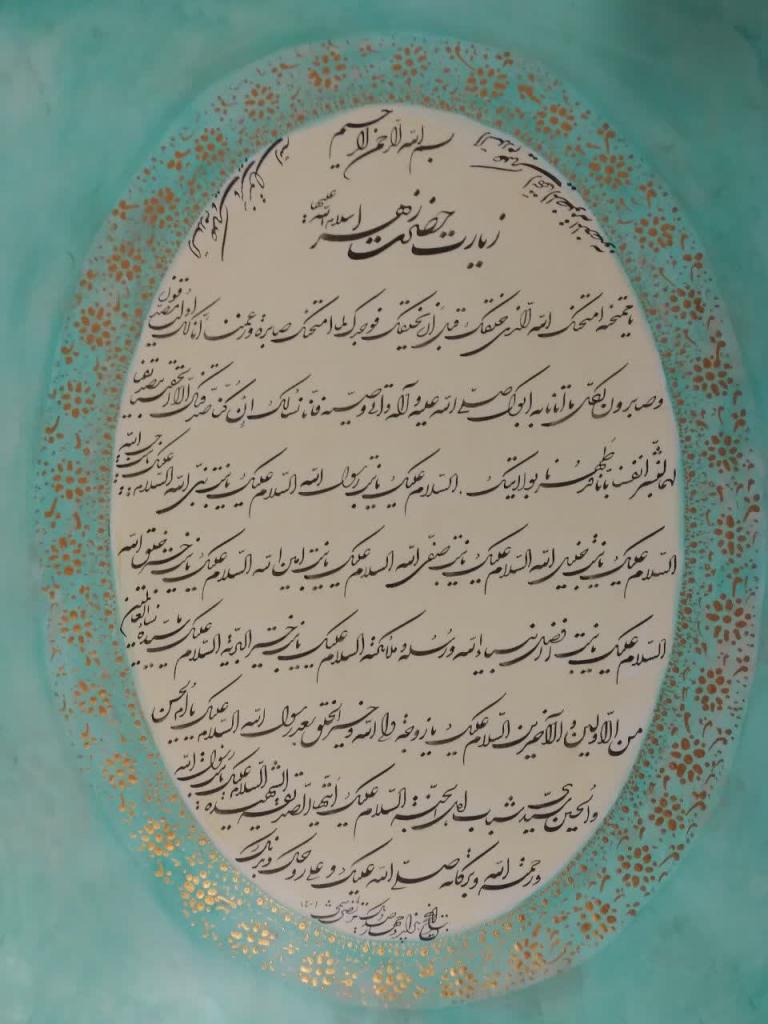 بسم الله الرحمن الرحیم
زیارت حضرت زهرا سلام الله علیها
یا ممتحنة امتحنک الله الذی خلقک قبل ان یخلقک فوجدک لما امتحنک صابرة وزعمنا انا لک اولیاء ومصدقون
وصابرون لکل ما اتانا به ابوک صلی الله علیه وآله واتی به وصیه فانا نسألک ان کنا صدقناک الا الحقتنا بتصدیقنا
لهما لنبشر انفسنا بانا قد طهرنا بولایتک. السلام علیک یا بنت رسول الله السلام علیک یا بنت نبی الله السلام علیک یا بنت حبیب الله
السلام علیک یا بنت خلیل الله السلام علیک یا بنت صفی الله السلام علیک یا بنت امین الله السلام علیک یا بنت خیر خلق الله
السلام علیک یا بنت افضل انبیاء الله ورسله وملائکته السلام علیک یا بنت خیر البریة السلام علیک یا سیدة نساء العالمین
من الاولین والآخرین السلام علیک یا زوجة ولی الله وخیر الخلق بعد رسول الله السلام علیک یا ام الحسن
والحسین سیدی شباب اهل الجنة السلام علیک ایتها الصدیقة الشهیدة السلام علیک یا بنت رسول الله
ورحمة الله وبرکاته صلی الله علیک وعلی روحک وبدنک
۱۴۰۱